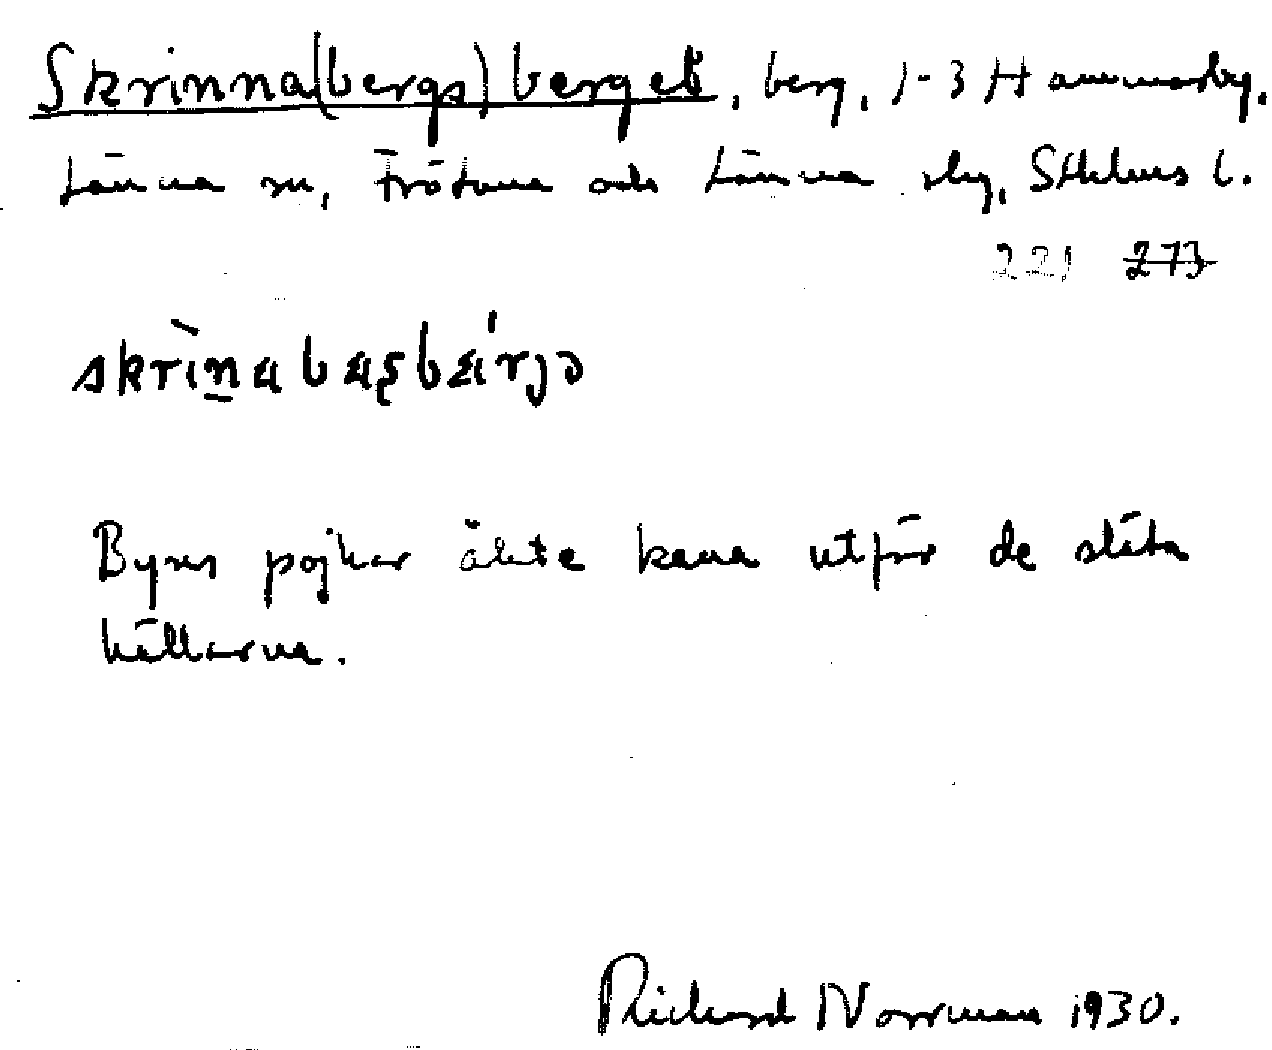 Skrinna(bergs)berget, berg, 1-3 Hammarby,
Länna sn, Frötuna och Länna skg, Sthlms l.
221 273
Byns pojkar åkte kana utför de släta
hällarna.
Richard Norrman 1930.